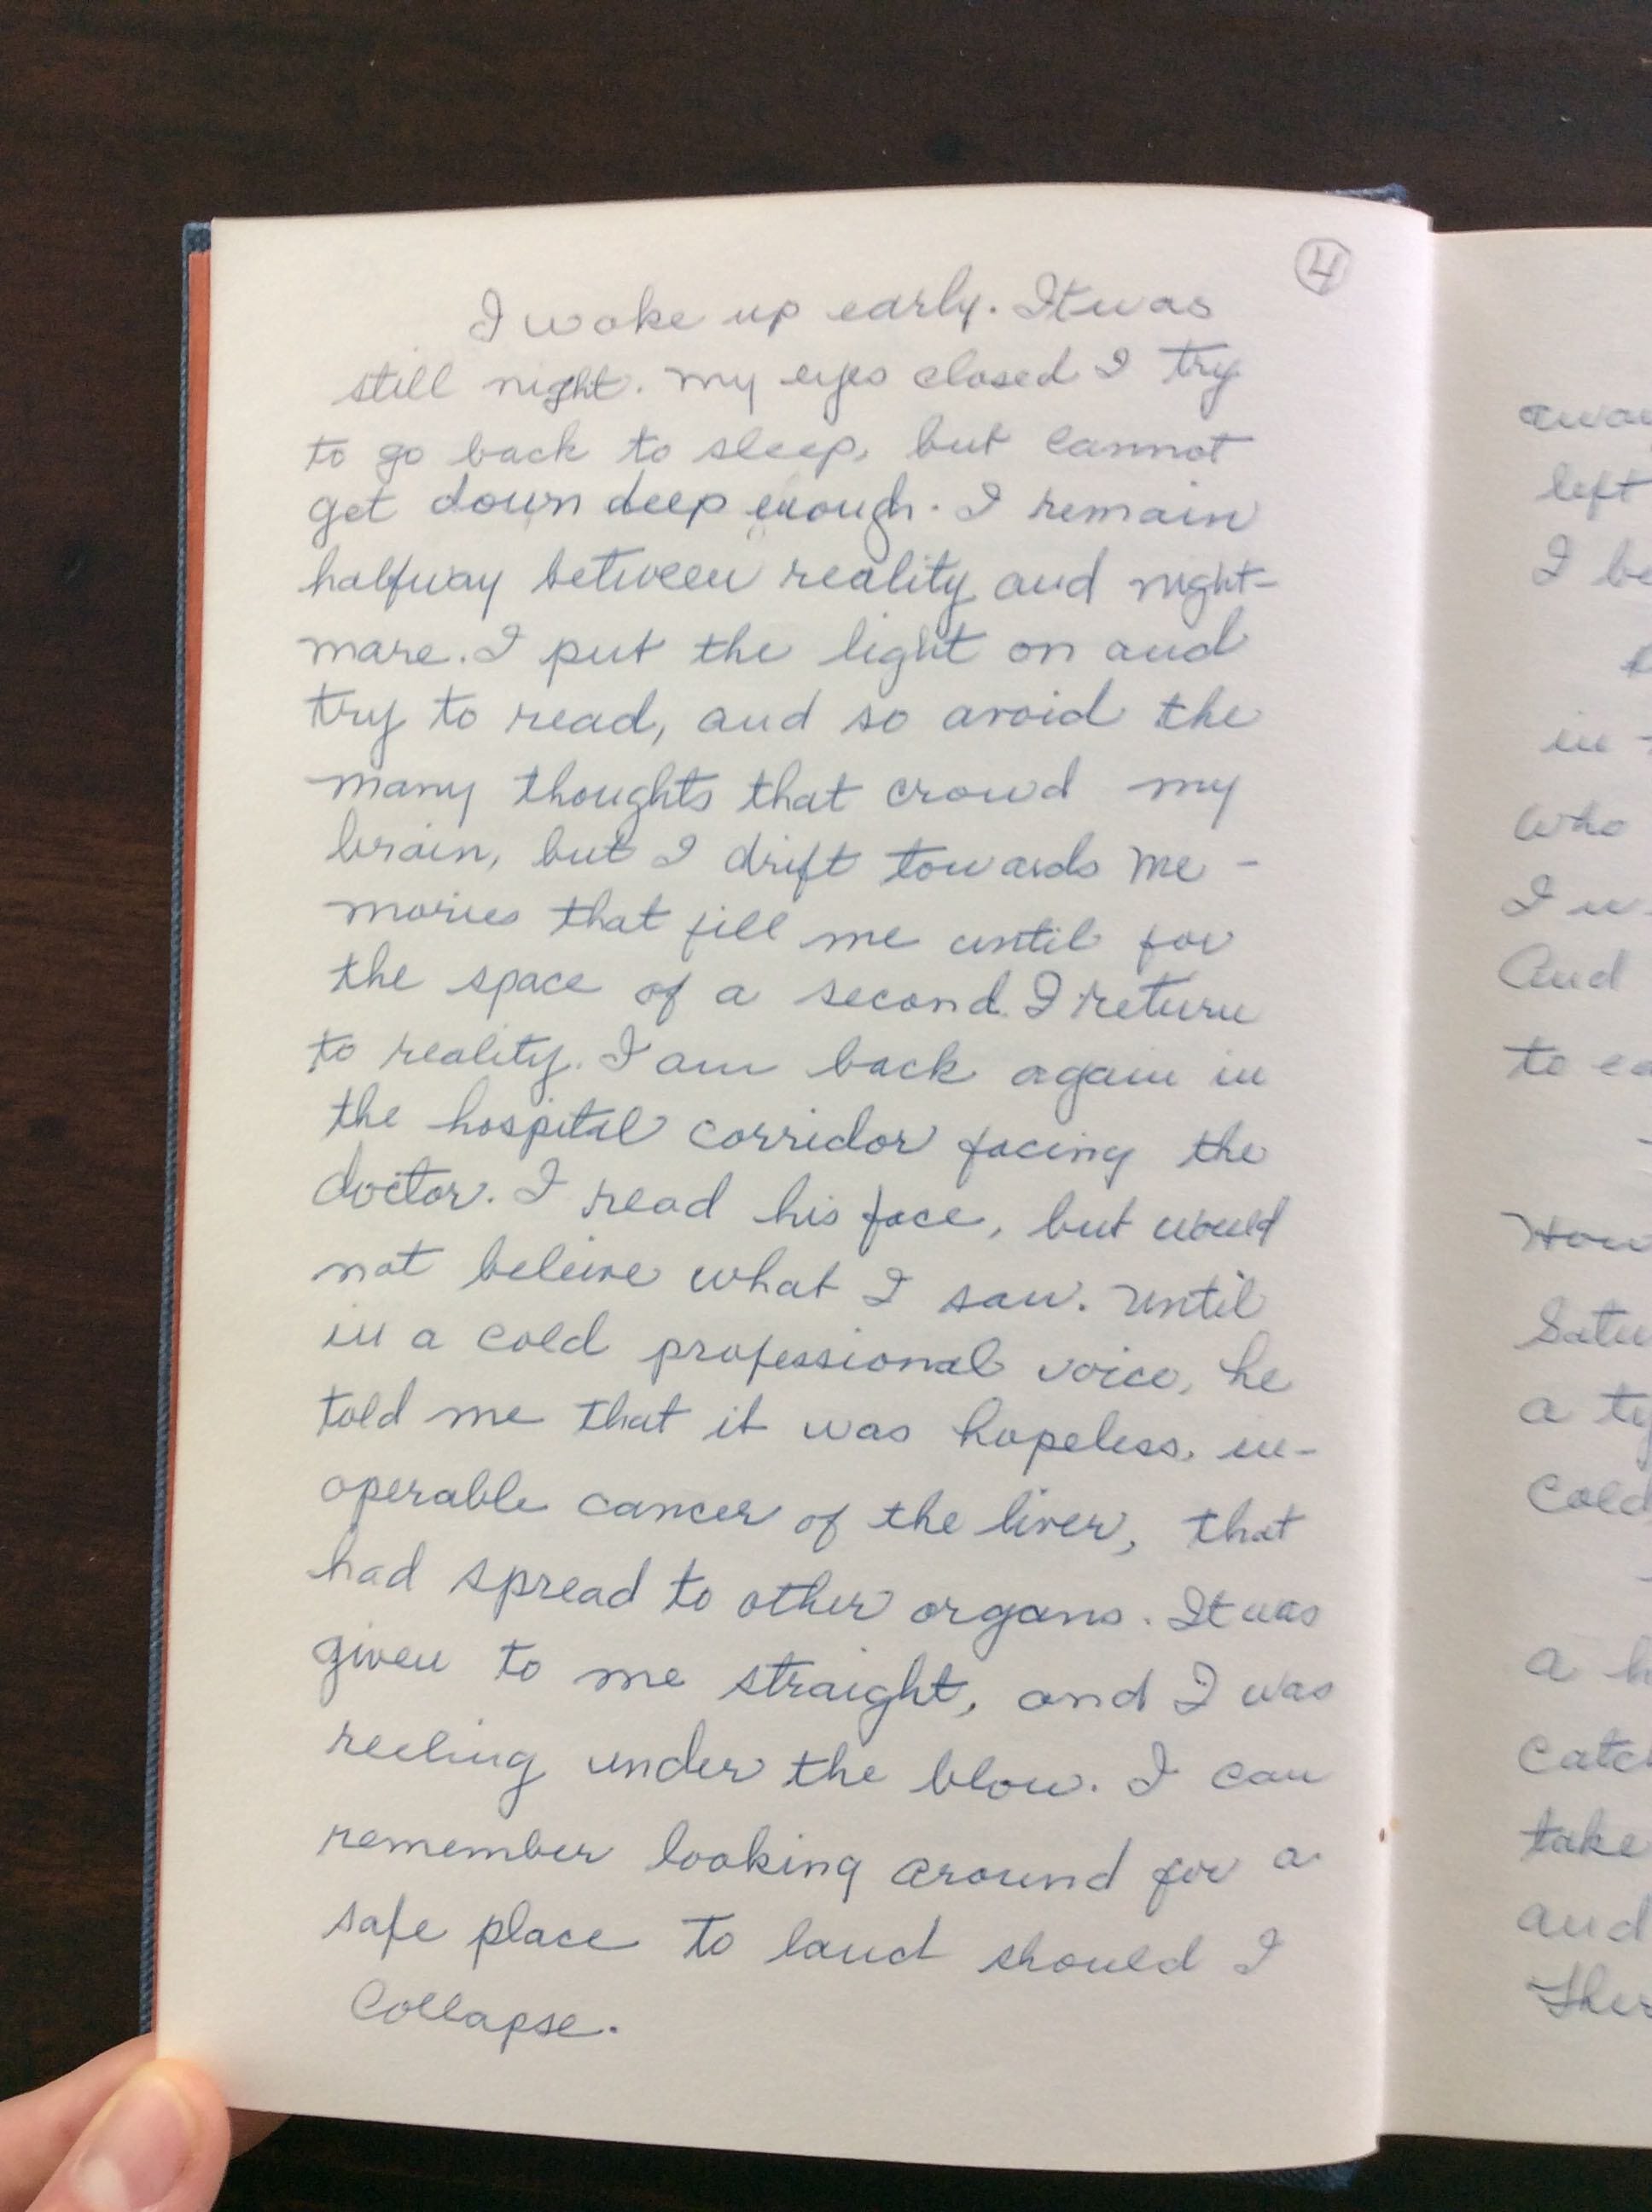 4
I woke up early. It was
still night. My eyes closed I try
to go back to sleep, but cannot
get down deep enough. I remain
halfway between reality and night-
mare. I put the light on and
try to read, and so avoid the
many thoughts that crowd my
brain, but I drift towards me-
mories that fill me until for
the space of a second I return
to reality. I am back again in
the hospital corridor facing the
doctor. I read his face, but would
not beleive what I saw. Until
in a cold professional voice, he
told me that it was hopeless, in-
operable cancer of the liver, that
had spread to other organs. It was
given to me straight, and I was
reeling under the blow. I can
remember looking around for a
safe place to land should I
Collapse.
left
I be
in
who
I
And
to
Satu
a
Cold
a
take
and